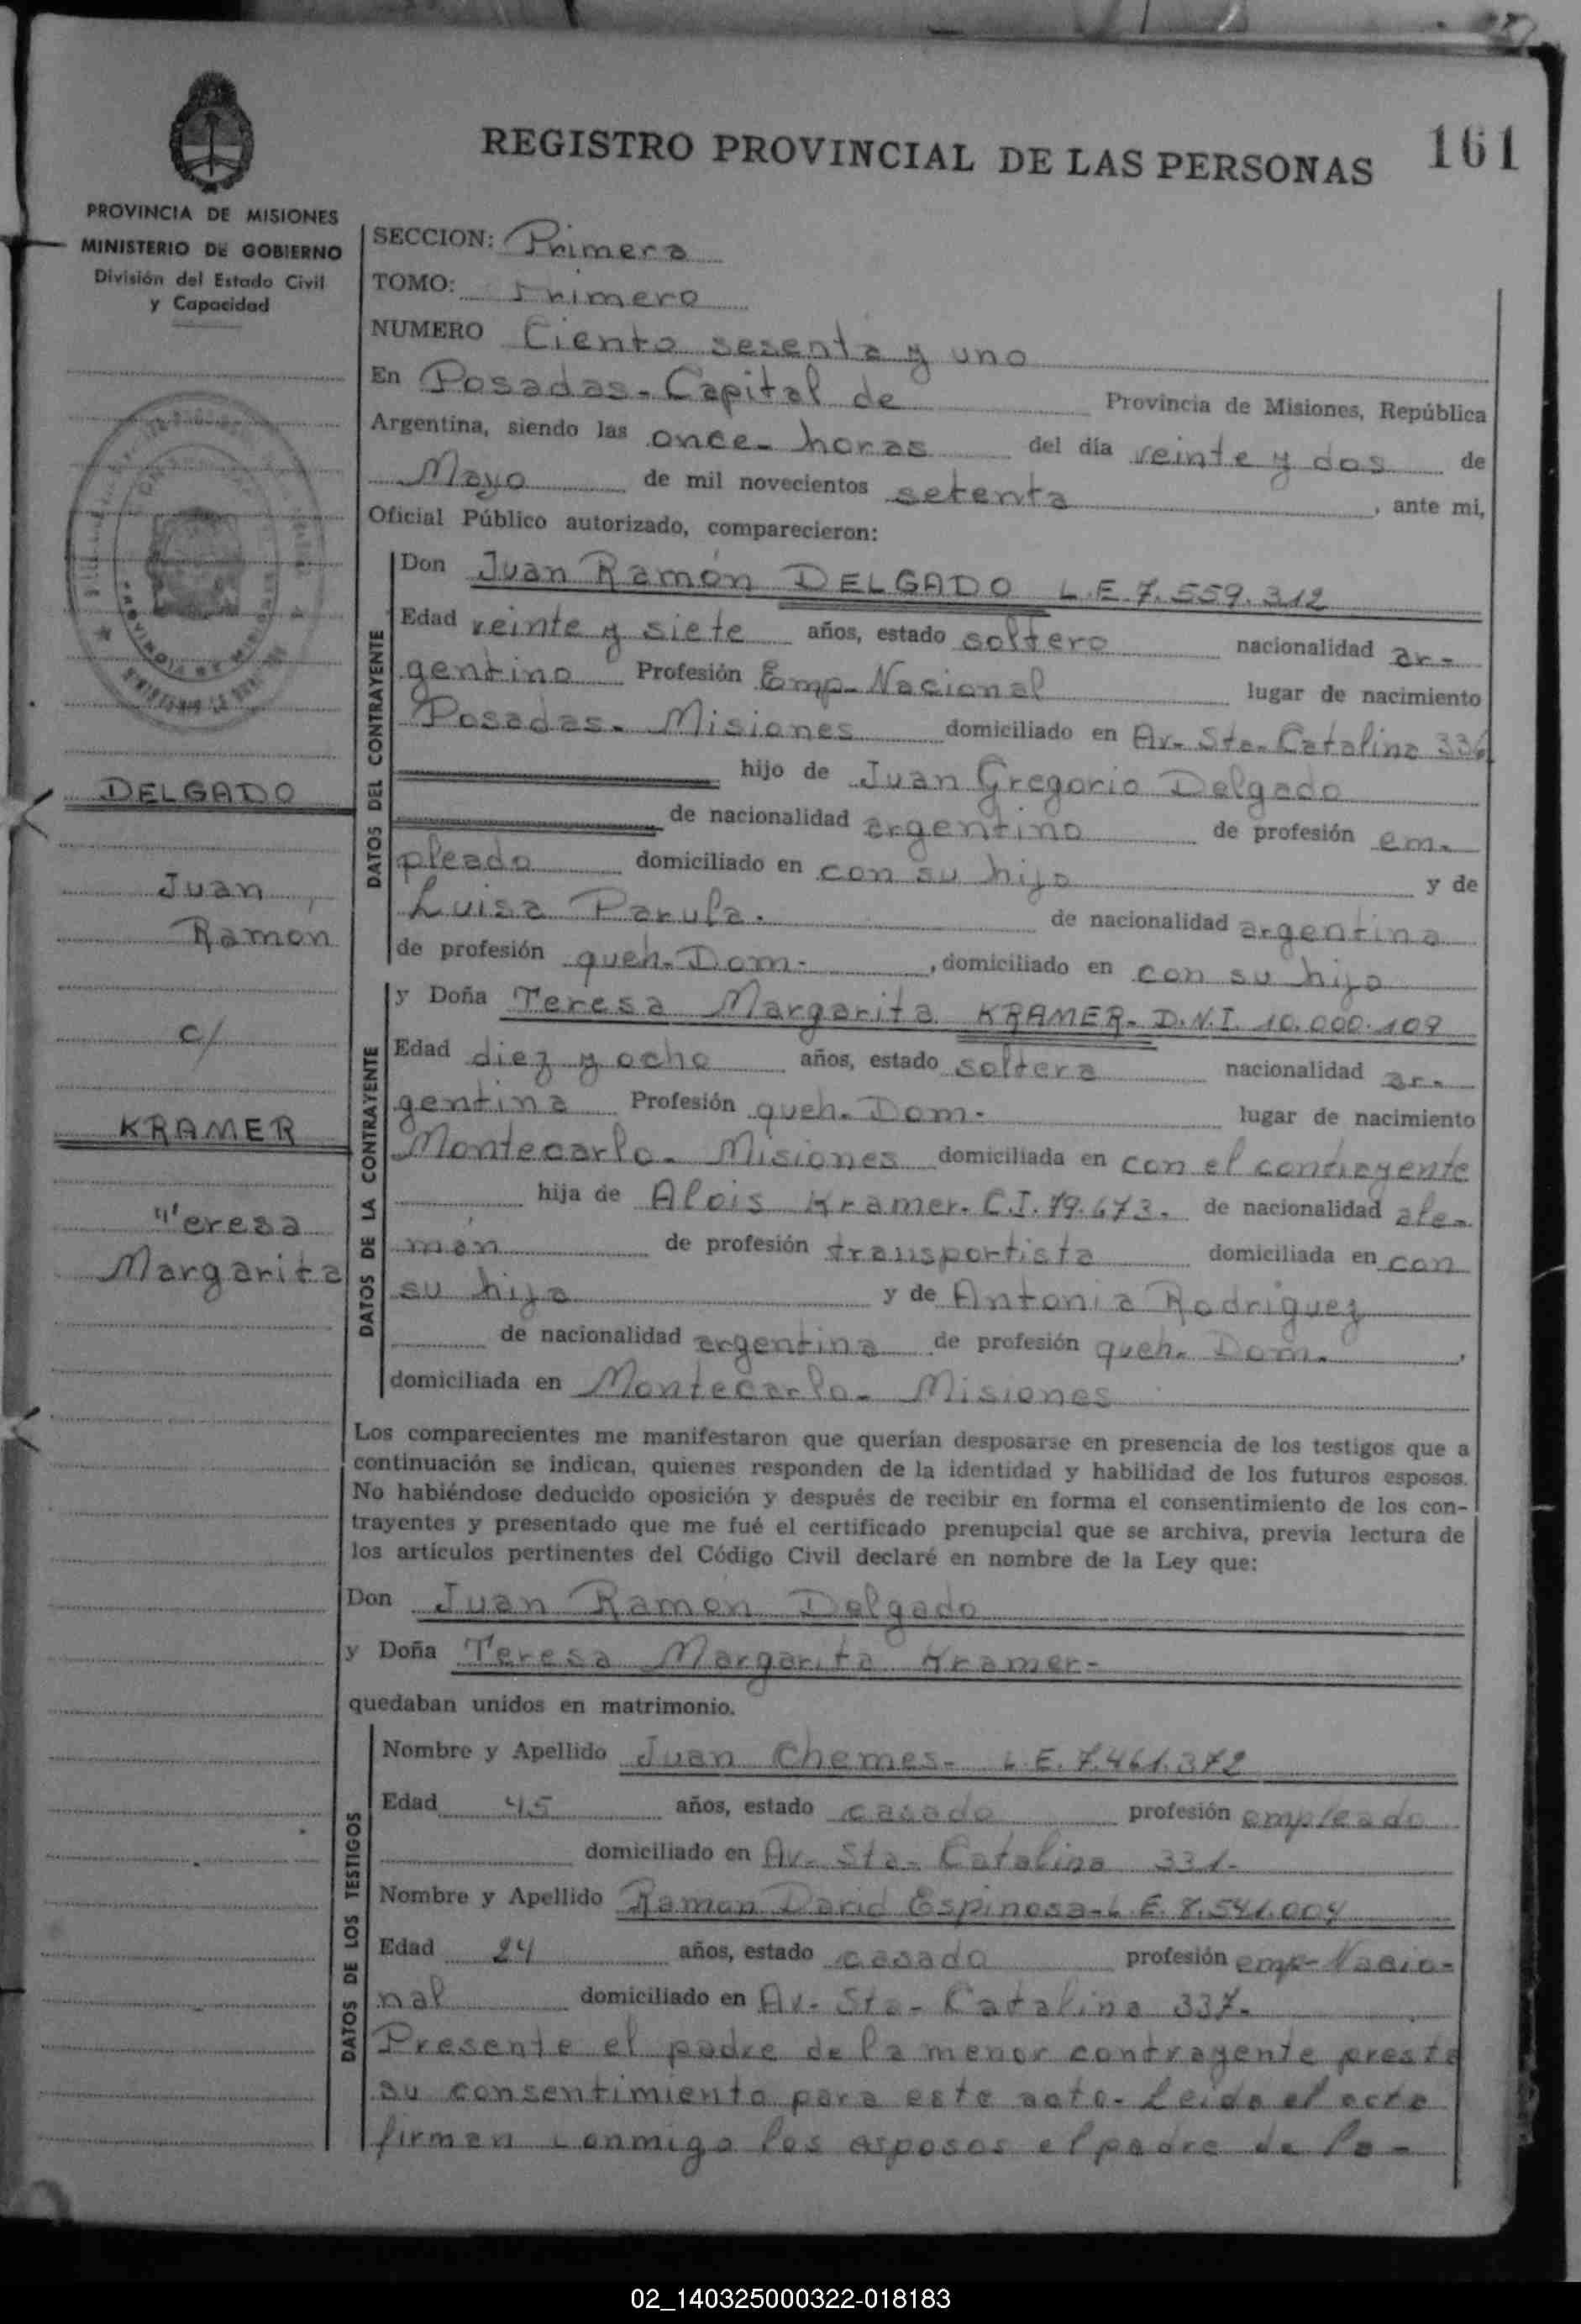 REGISTRO PROVINCIAL DE LAS PERSONAS
161
PROVINCIA DE MISIONES
MINISTERIO DE GOBIERNO
División del Estado Civil
y Capacidad
DELGADO
Juan
Ramon
c/
KRAMER
Teresa
Margarita
SECCION: Primera
TOMO: Primero
NUMERO Ciento sesenta y uno
En Posadas - Capital de Provincia de Misiones, República
Argentina, siendo las once - horas del día veinte y dos de
Mayo de mil novecientos setenta, ante mi,
Oficial Público autorizado, comparecieron:
DATOS DEL CONTRAYENTE
Don Juan Ramón DELGADO L.E. 7.559.312
Edad veinte y siete años, estado soltero nacionalidad ar-
gentino Profesión Emp. Nacional lugar de nacimiento
Posadas - Misiones domiciliado en Av. Sta. Catalina 336
hijo de Juan Gregorio Delgado
de nacionalidad argentino de profesión em-
pleado domiciliado en con su hijo y de
Luisa de nacionalidad argentina
de profesión queh. Dom. , domiciliado en con su hijo
DATOS DE LA CONTRAYENTE
y Doña Teresa Margarita KRAMER - D.N.I. 10.000.109
Edad diez y ocho años, estado soltera nacionalidad ar-
gentina Profesión queh. Dom. lugar de nacimiento
Montecarlo - Misiones domiciliada en con el contrayente
hija de Alois Kramer. C.I. 79.673. de nacionalidad ale-
mán de profesión transportista domiciliada en con
su hija y de Antonia Rodriguez
de nacionalidad argentina de profesión queh. Dom. ,
domiciliada en Montecarlo - Misiones
Los comparecientes me manifestaron que querían desposarse en presencia de los testigos que a
continuación se indican, quienes responden de la identidad y habilidad de los futuros esposos.
No habiéndose deducido oposición y después de recibir en forma el consentimiento de los con-
trayentes y presentado que me fué el certificado prenupcial que se archiva, previa lectura de
los artículos pertinentes del Código Civil declaré en nombre de la Ley que:
Don Juan Ramon Delgado
y Doña Teresa Margarita Kramer -
quedaban unidos en matrimonio.
DATOS DE LOS TESTIGOS
Nombre y Apellido Juan Chemes - L.E. 7.461.372
Edad 45 años, estado casado profesión empleado
domiciliado en Av. Sta. Catalina 331 -
Nombre y Apellido Ramon David Espinosa - L.E. 8.541.004
Edad 24 años, estado casado profesión emp. Nacio-
nal domiciliado en Av. Sta. Catalina 337 -
Presente el padre de la menor contrayente presta
su consentimiento para este acto - Leida el acta
firman conmigo los esposos el padre de la -
02_140325000322-018183